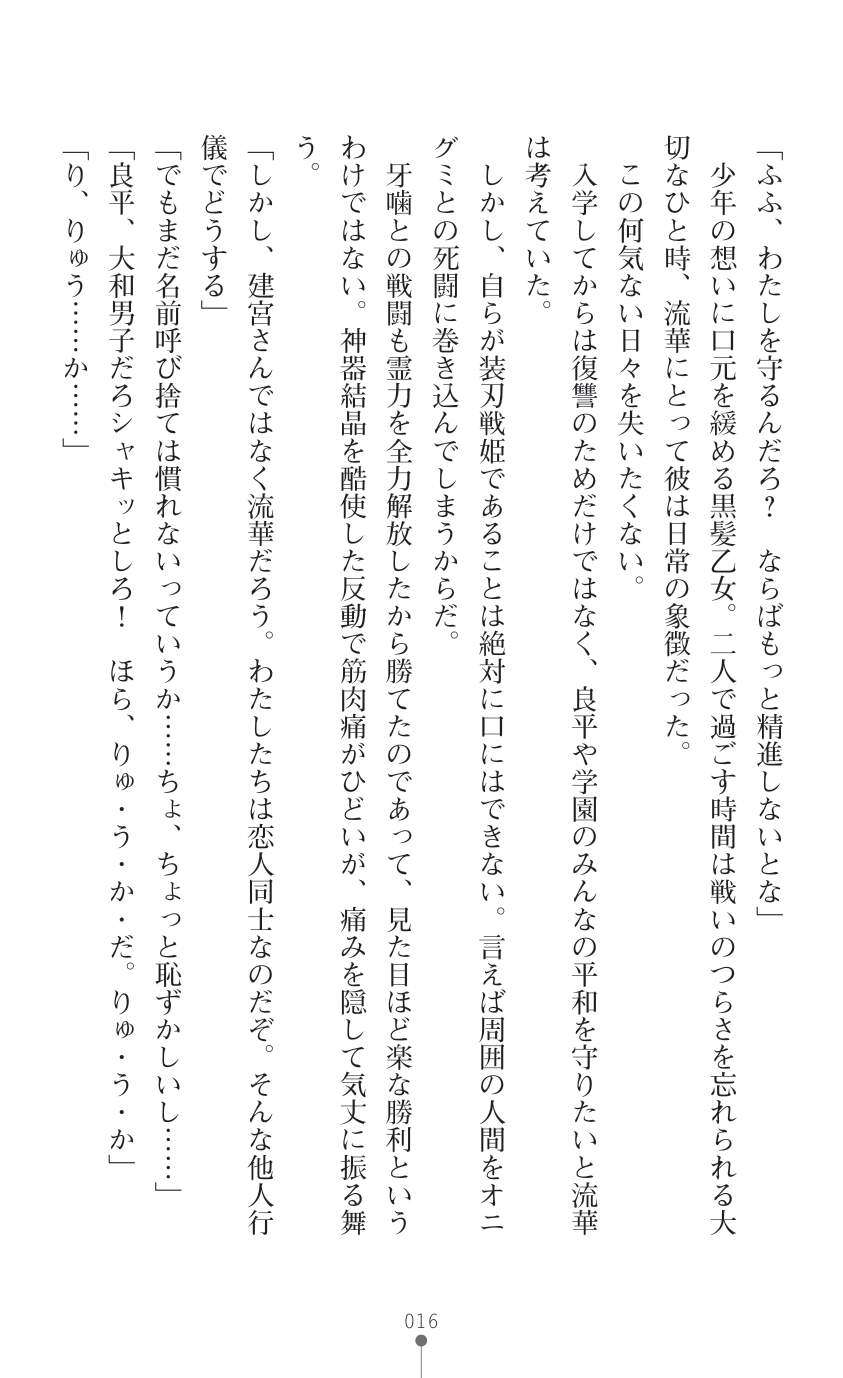 「ふふ、わたしを守るんだろ？　ならばもっと精進しないとな」
　少年の想いに口元を緩める黒髪乙女。二人で過ごす時間は戦いのつらさを忘れられる大
切なひと時、流華にとって彼は日常の象徴だった。
　この何気ない日々を失いたくない。
　入学してからは復讐のためだけではなく、良平や学園のみんなの平和を守りたいと流華
は考えていた。
　しかし、自らが装刃戦姫であることは絶対に口にはできない。言えば周囲の人間をオニ
グミとの死闘に巻き込んでしまうからだ。
　牙噛との戦闘も霊力を全力解放したから勝てたのであって、見た目ほど楽な勝利という
わけではない。神器結晶を酷使した反動で筋肉痛がひどいが、痛みを隠して気丈に振る舞
う。
「しかし、建宮さんではなく流華だろう。わたしたちは恋人同士なのだぞ。そんな他人行
儀でどうする」
「でもまだ名前呼び捨ては慣れないっていうか……ちょ、ちょっと恥ずかしいし……」
「良平、大和男子だろシャキッとしろ！　ほら、りゅ・う・か・だ。りゅ・う・か」
「り、りゅう……か……」
016